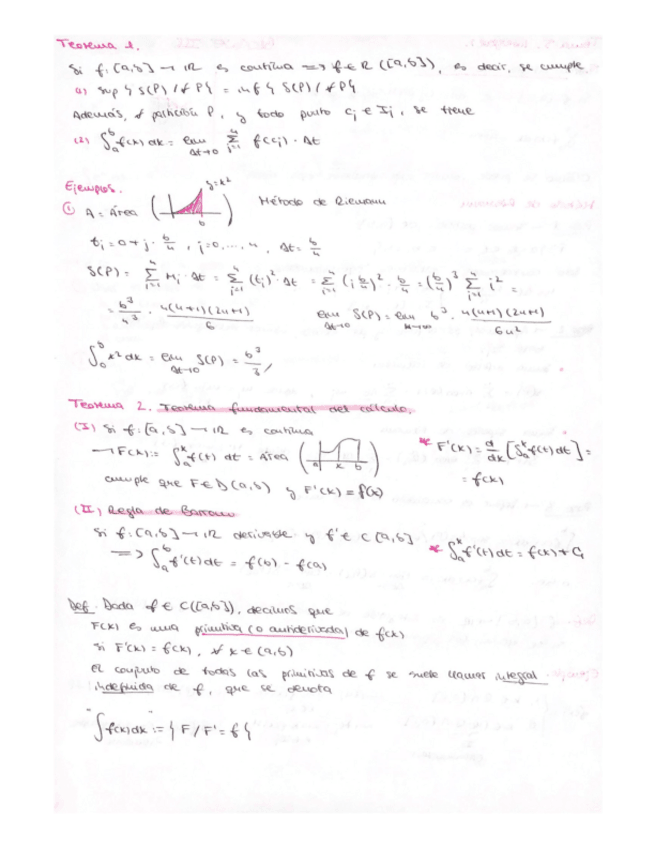 Teorema 1.
Si f: [a,b] → ℝ es continua ⟹ f ∈ R([a,b]), es decir, se cumple
a) sup { S(P) / ∀ P } = inf { S(P) / ∀ P }
Además, ∀ partición P, y todo punto cⱼ ∈ Iⱼ, se tiene
(2) ∫ₐᵇ f(x) dx = lim_{Δt→0} Σ_{j=1}^{n} f(cⱼ) · Δt
Ejemplos.
y=x²
① A = Área ( b ) Método de Riemann
tⱼ = 0 + j · b/n , j=0,..., n , Δt = b/n
S(P) = Σ_{j=1}^{n} Mⱼ · Δt = Σ_{j=1}^{n} (tⱼ)² · Δt = Σ_{j=1}^{n} (j b/n)² · b/n = (b/n)³ Σ_{j=1}^{n} j² =
= b³/n³ · n(n+1)(2n+1)/6 lim_{Δt→0} S(P) = lim_{n→∞} b³ · n(n+1)(2n+1)/6n²
∫₀ᵇ x² dx = lim_{Δt→0} S(P) = b³/3 //
Teorema 2. Teorema fundamental del cálculo.
(I) Si f: [a,b] → ℝ es continua
→ F(x) := ∫ₐˣ f(t) dt = Área ( a x b ) * F'(x) = d/dx [∫ₐˣ f(t) dt] =
cumple que F ∈ D(a,b) y F'(x) = f(x) = f(x)
(II) Regla de Barrow
Si f: [a,b] → ℝ derivable y f' ∈ C[a,b]
⟹ ∫ₐᵇ f'(t) dt = f(b) - f(a) * ∫ₐˣ f'(t) dt = f(x) + C,
Def. Dada f ∈ C([a,b]), decimos que
F(x) es una primitiva (o antiderivada) de f(x)
si F'(x) = f(x) , ∀ x ∈ (a,b)
El conjunto de todas las primitivas de f se suele llamar integral
indefinida de f, que se denota
"∫ f(x) dx" := { F / F' = f }